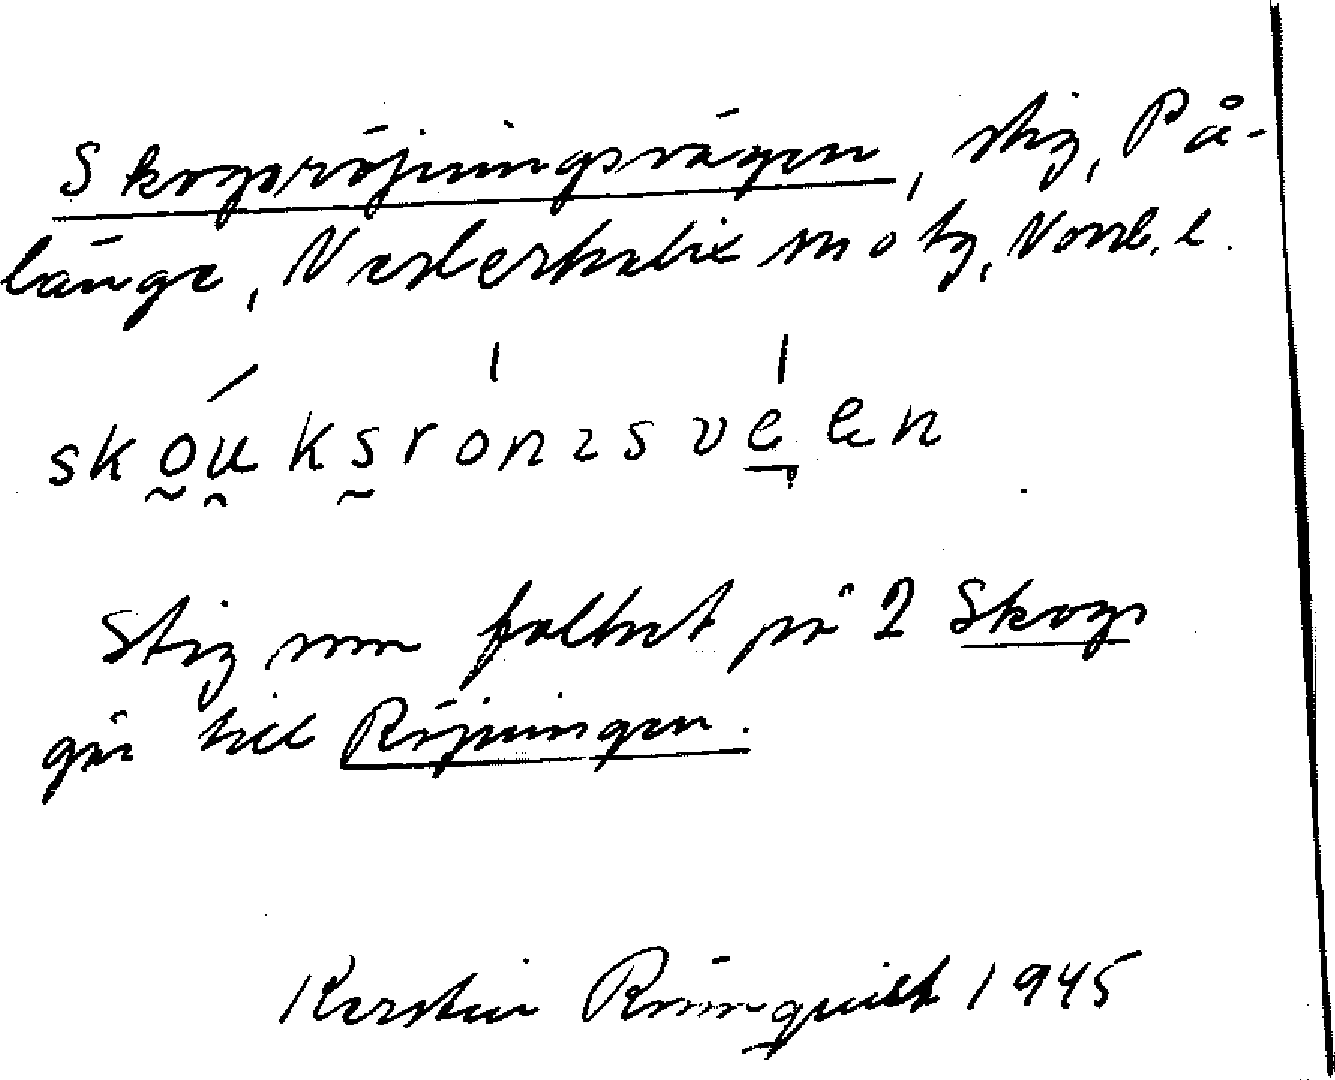 Skogsröjningsvägen, stig, På-
länge, Nederkalix sn o tg, Norrb. l.
skou̯ksrönıs veen
Stig som folket på 2 Skogs
går till Röjningen.
Kerstin Rönnqvist 1945